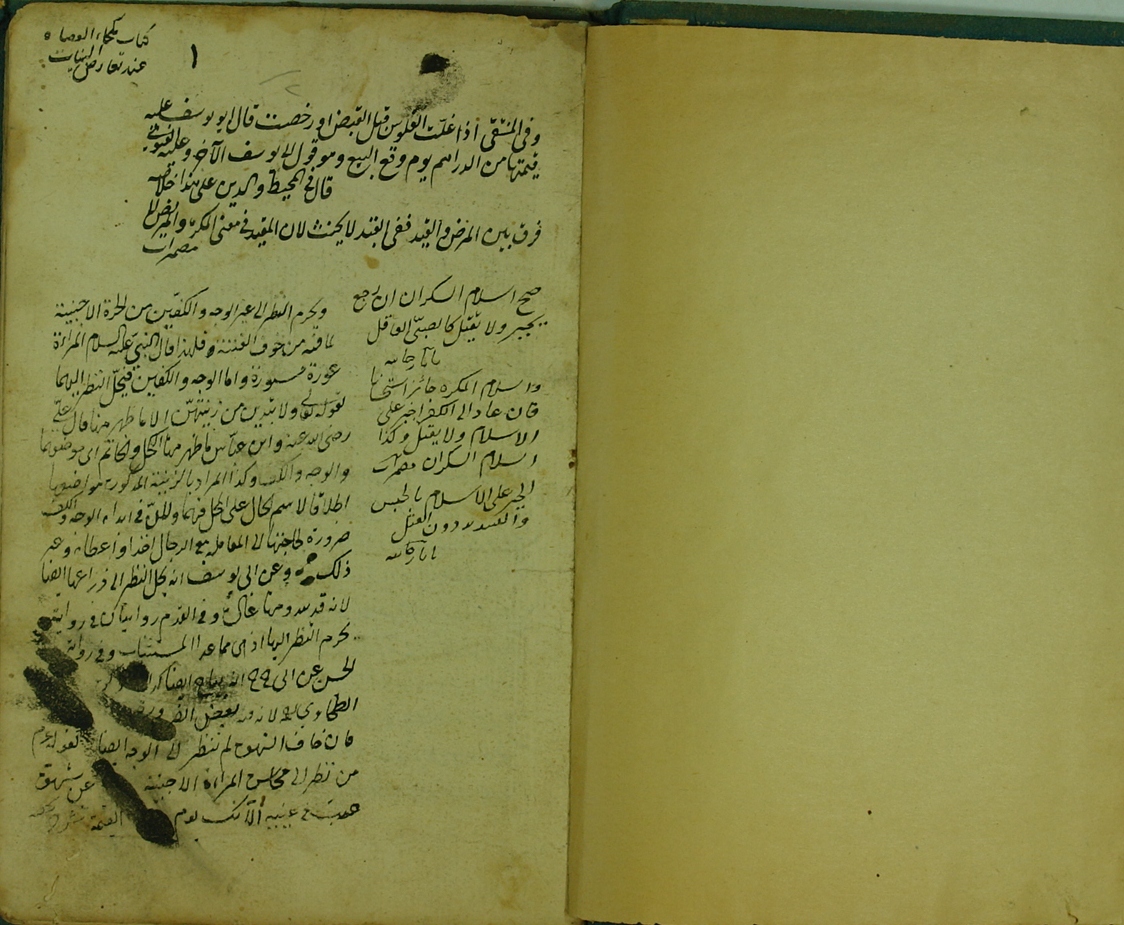 كتاب ملجاء القضاة
عند تعارض البينات
١
وفى المنتقى اذا غلت الفلوس قبل القبض او رخصت قال ابو يوسف عليه
قيمتها من الدراهم يوم وقع البيع وهو قول ابى يوسف الآخر وعليه الفتوى
قال فى المحيط والدين على هذا خلاصه
فرق بين المرض والقيد ففى القيد لا يحنث لان المقيد فى معنى المكره والمريض لا
مضمرات
صح اسلام السكران ان رجع
يجبر ولا يقتل كالصبى العاقل
واسلام المكره جائز استحسانا
فان عاد الى الكفر اجبر على
الاسلام ولا يقتل وكذا
اسلام السكران مضمرات
الجبر على الاسلام بالحبس
والتهديد دون القتل
ويحرم النظر الى غير الوجه والكفين من الحرة الاجنبية
لما فيه من خوف الفتنة ولهذا قال النبى عليه السلام المرأة
عورة مستورة واما الوجه والكفين فيحل النظر اليهما
لقوله تعالى ولا يبدين من زينتهن الا ما ظهر منها قال على
رضى الله عنه وابن عباس ما ظهر منها الكحل والخاتم اى موضعهما
والوجه والكف وكذا المراد بالزينة المذكورة مواضعها
اطلاقا لاسم الحال على المحل فيهما ولان فى ابداء الوجه والكف
ضرورة لحاجتها الى المعاملة مع الرجال اخذا واعطاء وغير
ذلك وعن ابى يوسف انه يحل النظر الى ذراعها ايضا
لانه قد يبدو منها عادة وفى القدم روايتان فى رواية
يحرم النظر اليها اذ هى مما عدا المستثنى وفى رواية
الحسن عن ابى ح انه يباح ايضا
الطحاوى لانه بعض الضرورة
فان خاف الشهوة لم ينظر الى الوجه ايضا لقوله عم
من نظر الى محاسن المرأة الاجنبية عن شهوة
صب فى عينيه الآنك يوم القيمة